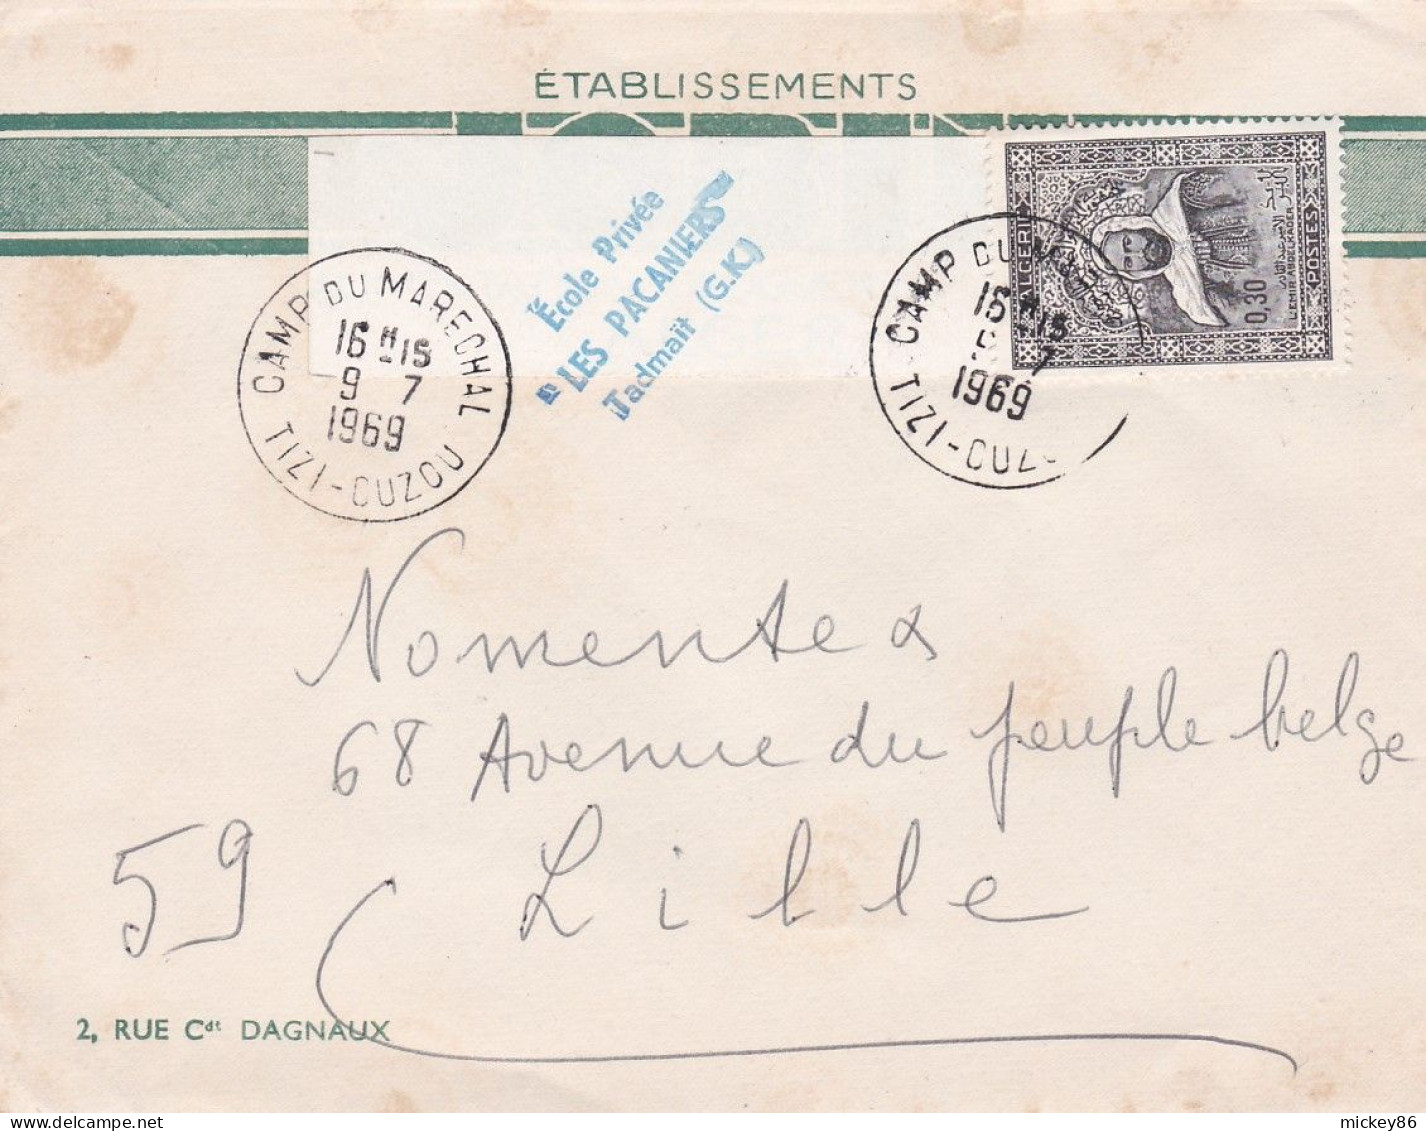 ÉTABLISSEMENTS
École Privée
"LES PACANIERS"
Tadmaït (G.K)
CAMP DU MARECHAL
16 H 15
9 7
1969
TIZI-OUZOU
CAMP DU
16 H 15
7
1969
TIZI-OUZ
ALGERIE
0,30
POSTES
L'EMIR ABDELKADER
Nomente
68 Avenue du peuple belge
59 Lille
2, RUE Cdt DAGNAUX
mickey86